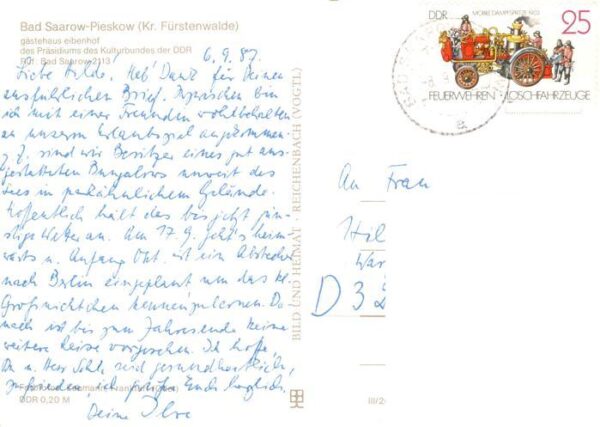 Bad Saarow-Pieskow (Kr. Fürstenwalde)
gästehaus eibenhof
des Präsidiums des Kulturbundes der DDR
Ruf: Bad Saarow 2113
6.9.87.
Liebe Hilde! Hab' Dank für Deinen
ausführlichen Brief. Inzwischen bin
ich mit einer Freundin wohlbehalten
an unserem Urlaubsziel angekommen.
Z.Z. sind wir Besitzer eines gut aus-
gestatteten Bungalows unweit des
Sees in parkähnlichem Gelände.
Hoffentlich hält das bis jetzt gün-
stige Wetter an. Am 17.9. geht's heim-
wärts u. Anfang Okt. ist ein Abstecher
nach Berlin eingeplant um das kl.
Großnichtchen kennenzulernen. Da-
nach ist bis zum Jahresende keine
weitere Reise vorgesehen. Ich hoffe,
Du u. Herr seid gesundheitlich
zufrieden, ich grüße Euch herzlich,
Deine Ilse
DDR 0,20 M
BILD UND HEIMAT · REICHENBACH (VOGTL)
DDR
MOBILE DAMPFSPRITZE 1903
25
FEUERWEHREN · LÖSCHFAHRZEUGE
An Frau
Hil
War
D 3
III/2